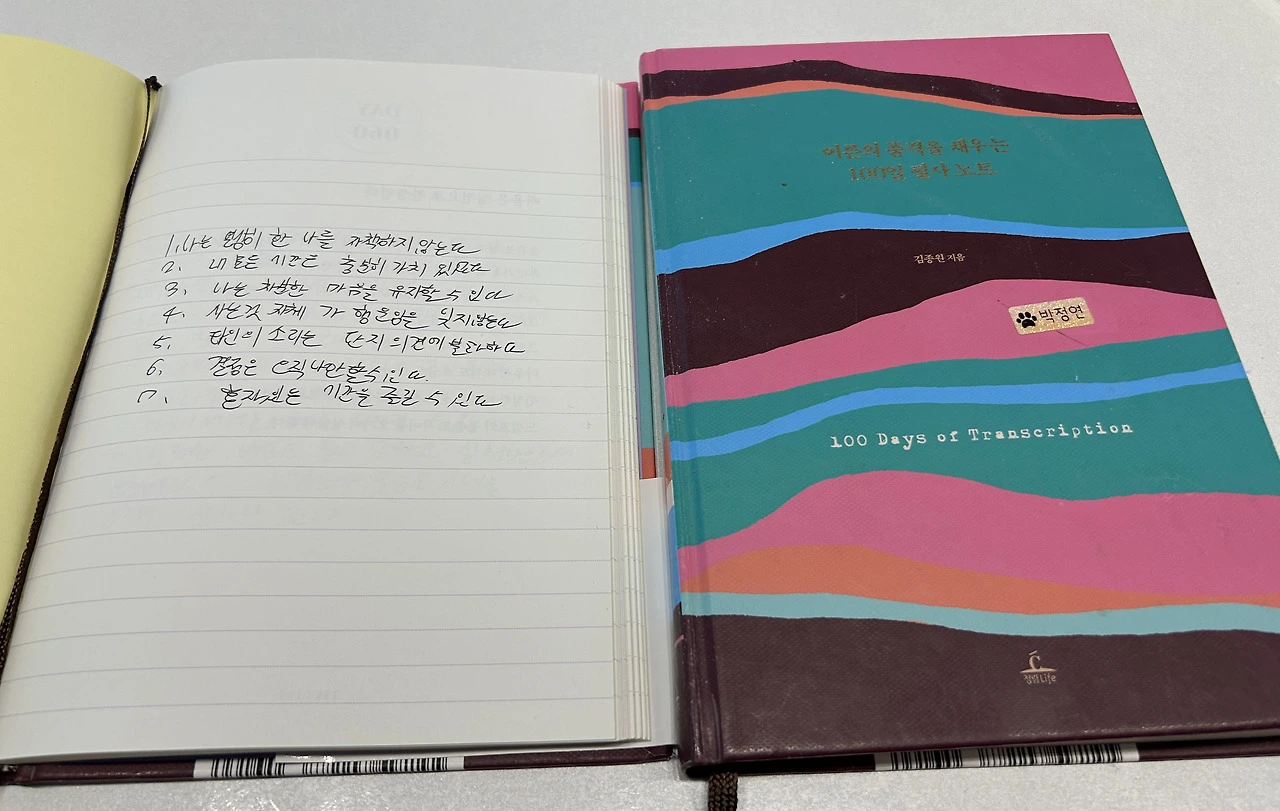 1. 나는 열심히 한 나를 자책하지 않는다
2. 내 모든 시간은 충분히 가치 있었다
3. 나는 차분한 마음을 유지할 수 있다
4. 사는 것 자체가 힘을 잊지 않는다
5. 타인의 소리는 단지 의견에 불과하다
6. 결정은 오직 나만 할 수 있다.
7. 혼자 있는 시간을 즐길 수 있다
어른의 품격을 채우는
100일 필사 노트
김종원 지음
박정연
100 Days of Transcription
청림Life
DAY
060